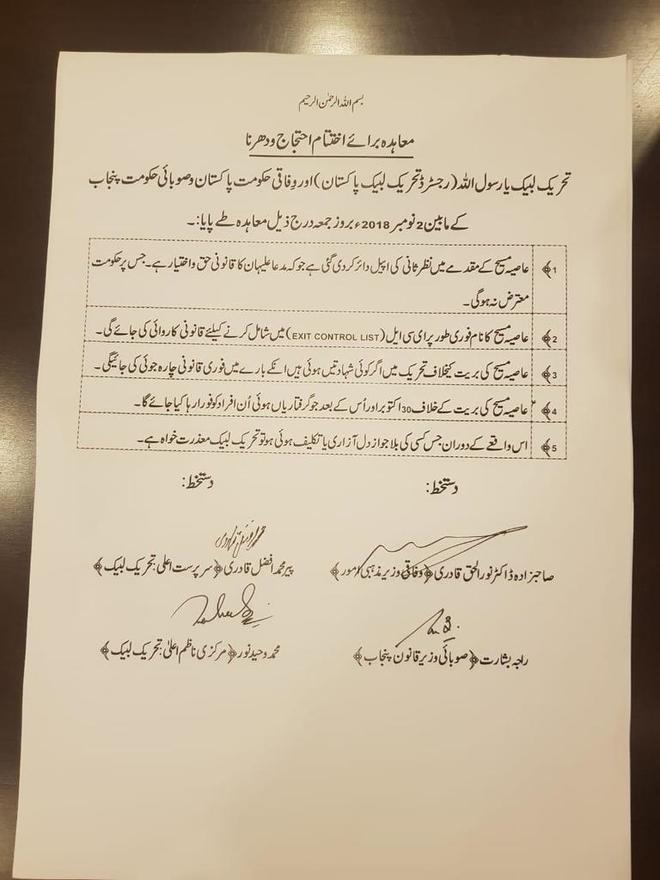 بسم اللہ الرحمٰن الرحیم
معاہدہ برائے اختتام احتجاج ودھرنا
تحریک لبیک یارسول اللہ (رجسٹرڈ تحریک لبیک پاکستان) اور وفاقی حکومت پاکستان و صوبائی حکومت پنجاب
کے مابین 2 نومبر 2018ء بروز جمعہ درج ذیل معاہدہ طے پایا:۔
1﴾ عاصیہ مسیح کے مقدمے میں نظر ثانی کی اپیل دائر کردی گئی ہے جو کہ مدعا علیہان کا قانونی حق و اختیار ہے۔ جس پر حکومت
معترض نہ ہوگی۔
2﴾ عاصیہ مسیح کا نام فوری طور پر ای سی ایل (EXIT CONTROL LIST) میں شامل کرنے کیلئے قانونی کاروائی کی جائے گی۔
3﴾ عاصیہ مسیح کی بریت کیخلاف تحریک میں اگر کوئی شہادتیں ہوئی ہیں انکے بارے میں فوری قانونی چارہ جوئی کی جائیگی۔
4﴾ عاصیہ مسیح کی بریت کے خلاف 30 اکتوبر اور اُس کے بعد جو گرفتاریاں ہوئی اُن افراد کو فوراً رہا کیا جائے گا۔
5﴾ اس واقعے کے دوران جس کسی کی بلا جواز دل آزاری یا تکلیف ہوئی ہو تو تحریک لبیک معذرت خواہ ہے۔
دستخط: دستخط:
صاحبزادہ ڈاکٹر نور الحق قادری ﴿وفاقی وزیر مذہبی امور﴾ پیر محمد افضل قادری ﴿سرپرست اعلیٰ: تحریک لبیک﴾
راجہ بشارت ﴿صوبائی وزیر قانون پنجاب﴾ محمد وحید نور ﴿مرکزی ناظم اعلیٰ: تحریک لبیک﴾